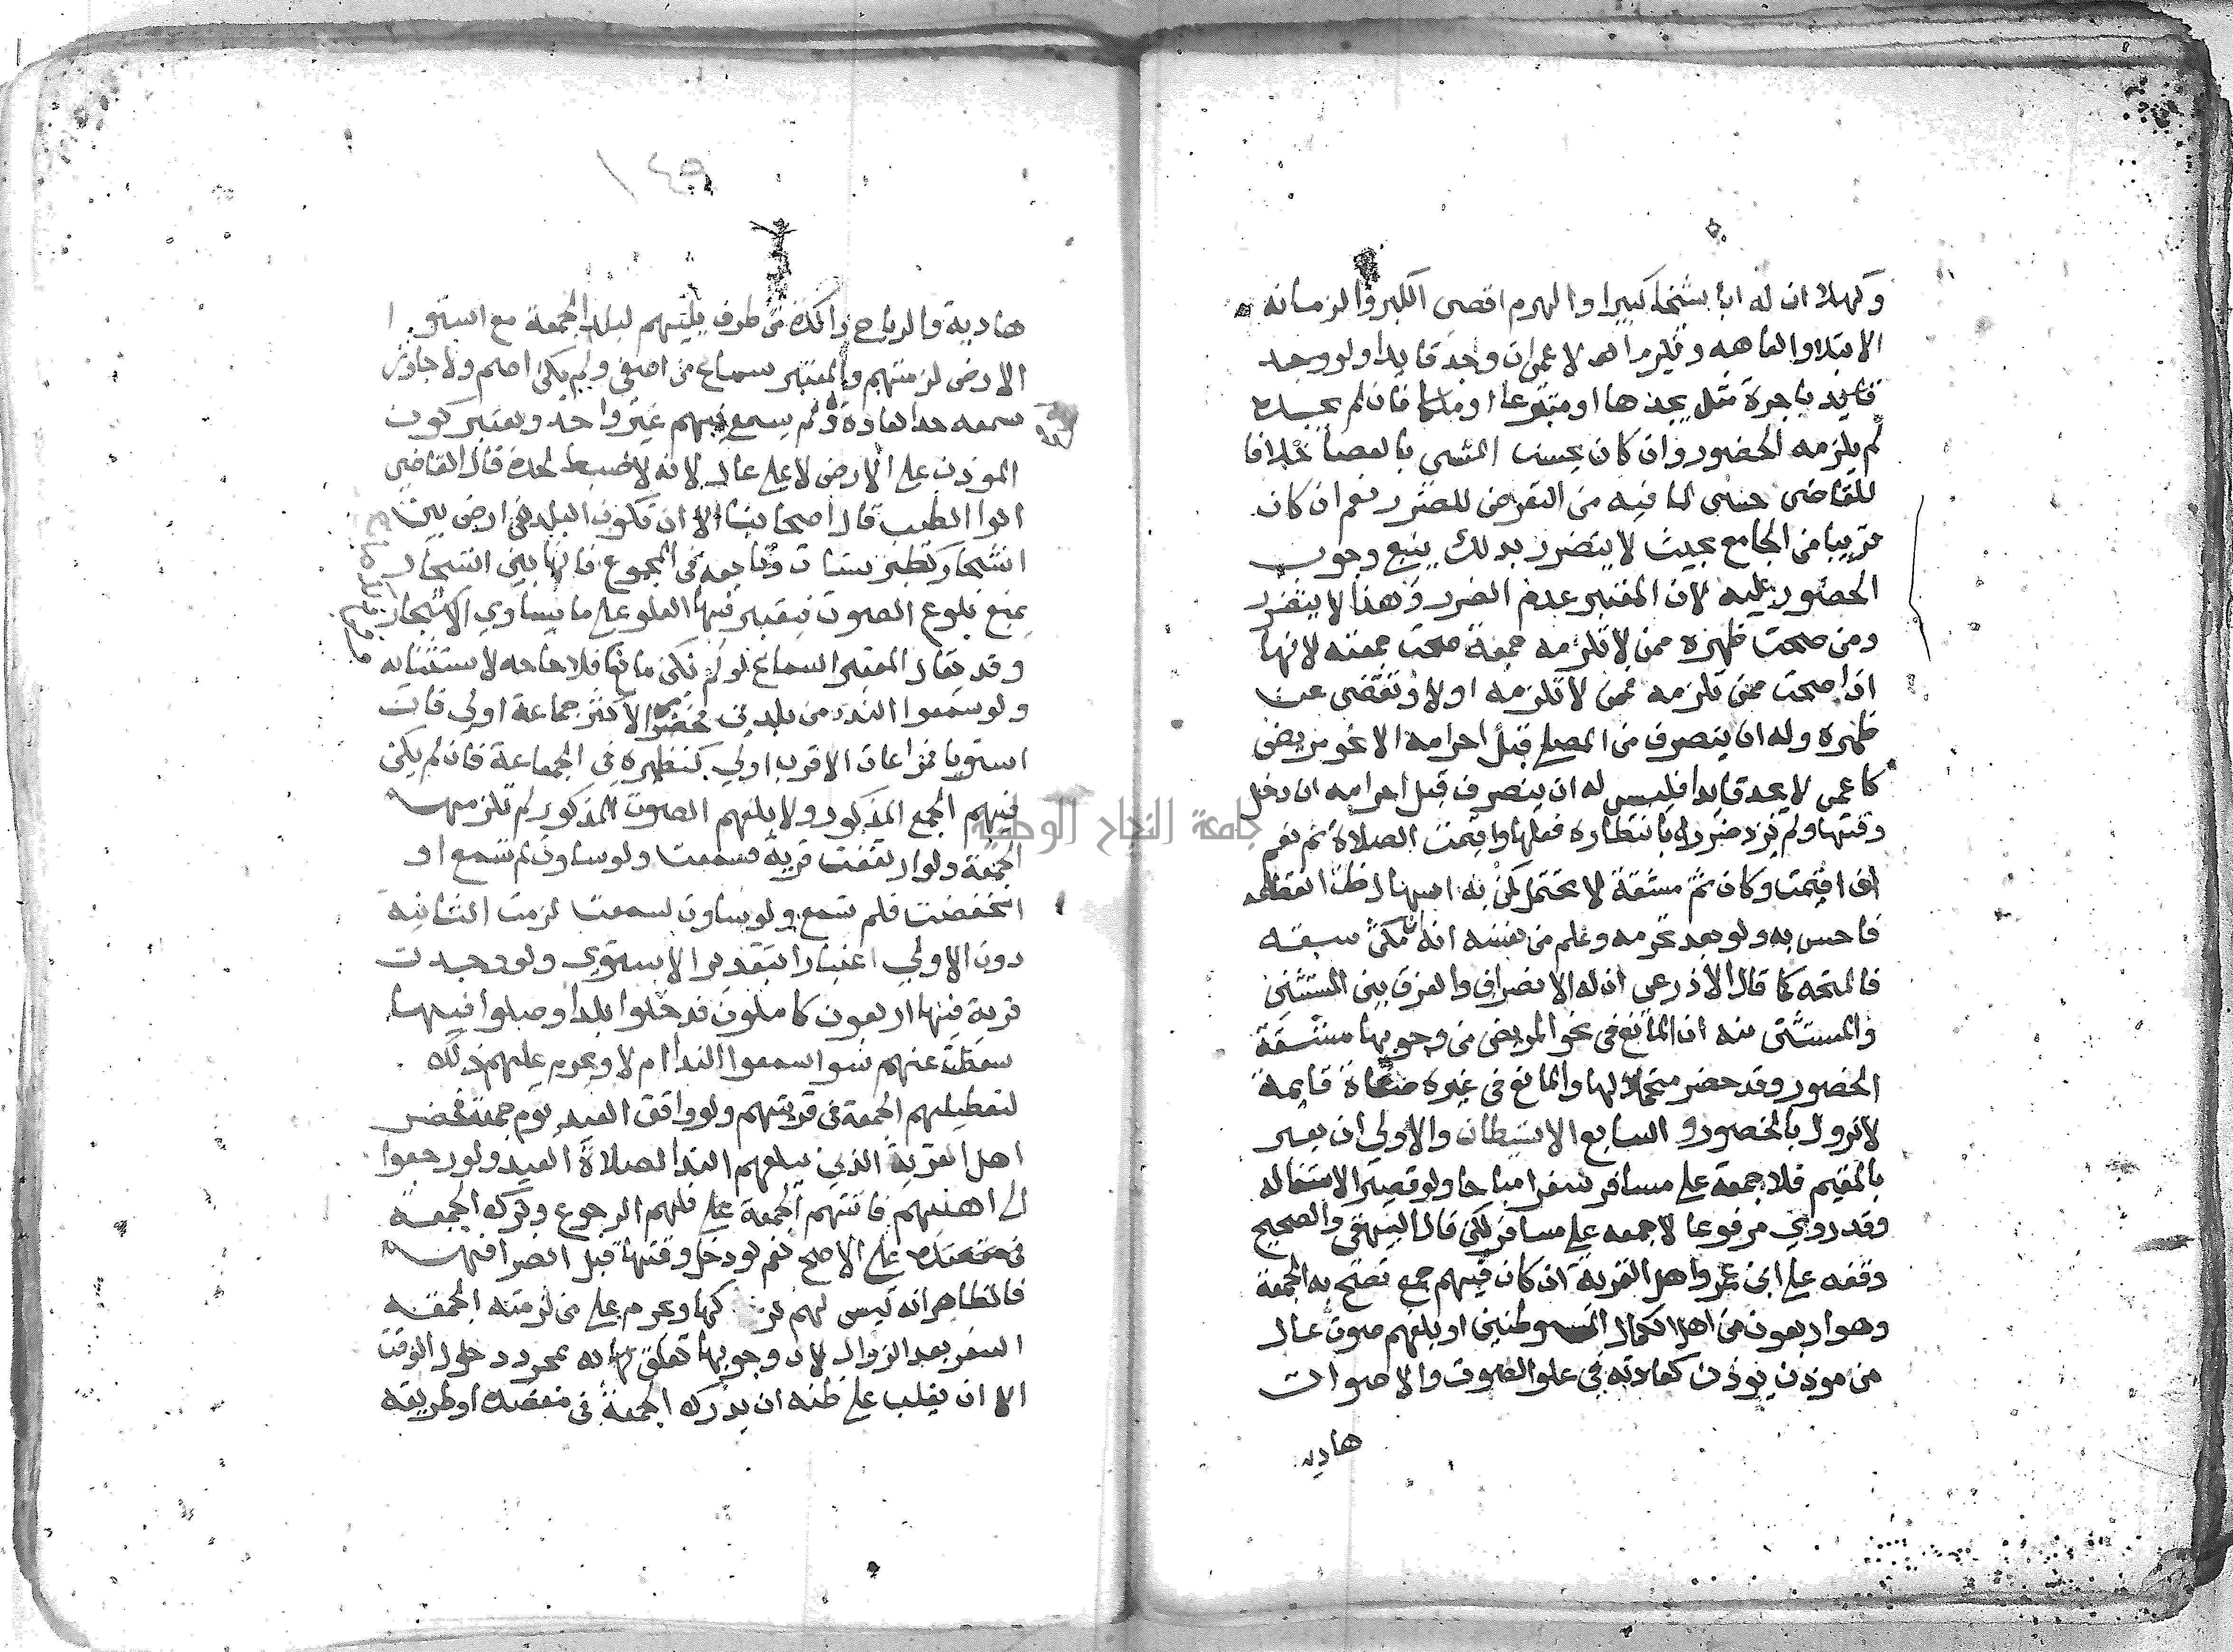 وكهلا ان له ابا شيخا كبيرا والهرم اقصى الكبر والزمانه
الابتلا والعاهه وتلزم الاعمى ان وجد قايدا ولو وجد
قايد باجرة مثل يجدها او متبرعا او ملكا فان لم يجده
لم يلزمه الحضور وان كان يحسن المشي بالعصا خلافا
للقاضي حسين لما فيه من التعرض للضرر نعم ان كان
قريبا من الجامع بحيث لا يتضرر بذلك ينبغ وجوب
الحضور عليه لان المعتبر عدم الضرر وهذا لا يتضرر
ومن صحت ظهره ممن لا تلزمه جمعة صحت جمعته لانها
اذا صحت ممن تلزمه فمن لا تلزمه اولا وتقضى عن
ظهره وله ان ينصرف من المصلى قبل احرامه الا نحو مريض
كاعمى لا يجد قايدا فليس له ان ينصرف قبل احرامه ان دخل
وقتها ولم يزد ضرره بانتظاره فعلها واقيمت الصلاة ثم نعم
ان اقيمت وكان ثم مشقة لا تحتمل كمن به اسهال ظن انقطاعه
فاحس به ولو بعد تحرمه وعلم من نفسه انه ان مكث سبقه
فالمتجه كما قال الاذرعي ان له الانصراف والفرق بين المستثنى
والمستثنى منه ان المانع في نحو المريض من وجوبها مشقة
الحضور وقد حضر متحملا لها والمانع في غيره صفات قايمة
لا تزول بالحضور والسابع الاستيطان والاولى ان يعبر
بالمقيم فلا جمعة على مسافر سفرا مباحا ولو قصيرا لاشتغاله
وقد روي مرفوعا لا جمعه على مسافر لكن قال البيهقي والصحيح
وقفه على ابن عمر واهل القرية ان كان فيهم جمع تصح به الجمعة
وهو اربعون من اهل الكمال المستوطنين او بلغهم صوت عال
من موذن يوذن كعادته في علو الصوت والاصوات
هاديه
١٤٩
هادية والرياح راكدة من طرف يليهم لبلد الجمعة مع استوا
الارض لزمتهم والمعتبر سماع من اصغى ولم يكن اصم ولا جاوز
سمعه حد العادة ولو لم يسمع منهم غير واحد ويعتبر كون
الموذن على الارض لا على عال لانه لا ضبط لحده قال القاضي
ابوا الطيب قال اصحابنا الا ان تكون البلد في ارض بين
اشجار كطبرستان وتابعه في المجموع فانها بين اشجار
تمنع بلوغ الصوت فيعتبر فيها العلو على ما يساوي الاشجار
وقد يقال المعتبر السماع لو لم يكن مانع فلا حاجه لاستثنايه
ولو سمعوا الندا من بلدين فحضور الاكثر جماعة اولى فان
استويا فمراعات الاقرب اولى كنظيره في الجماعة فان لم يكن
فيهم الجمع المذكور ولا بلغهم الصوت المذكور لم تلزمهم
الجمعة ولو ارتفعت قرية فسمعت ولو ساوت لم تسمع او
انخفضت فلم تسمع ولو ساوت لسمعت لزمت الثانية
دون الاولى اعتبارا بتقدير الاستوى ولو وجدت
قرية فيها اربعون كاملون فدخلوا بلدا وصلوا فيها
سقطت عنهم سوا سمعوا الندا ام لا ويحرم عليهم ذلك
لتعطيلهم الجمعة في قريتهم ولو وافق العيد يوم جمعة فحضر
اهل القرية الذين يبلغهم الندا لصلاة العيد ولو رجعوا
الى اهليهم فاتتهم الجمعة على فلهم الرجوع وترك الجمعة
على الاصح نعم لو دخل وقتها قبل انصرافهم
فالظاهر انه ليس لهم تركها وحرم على من لزمته الجمعة
السفر بعد الزوال لان وجوبها تعلق به بمجرد دخول الوقت
الا ان يغلب على ظنه ان يدرك الجمعة في مقصده او طريقه
جامعة النجاح الوطنية